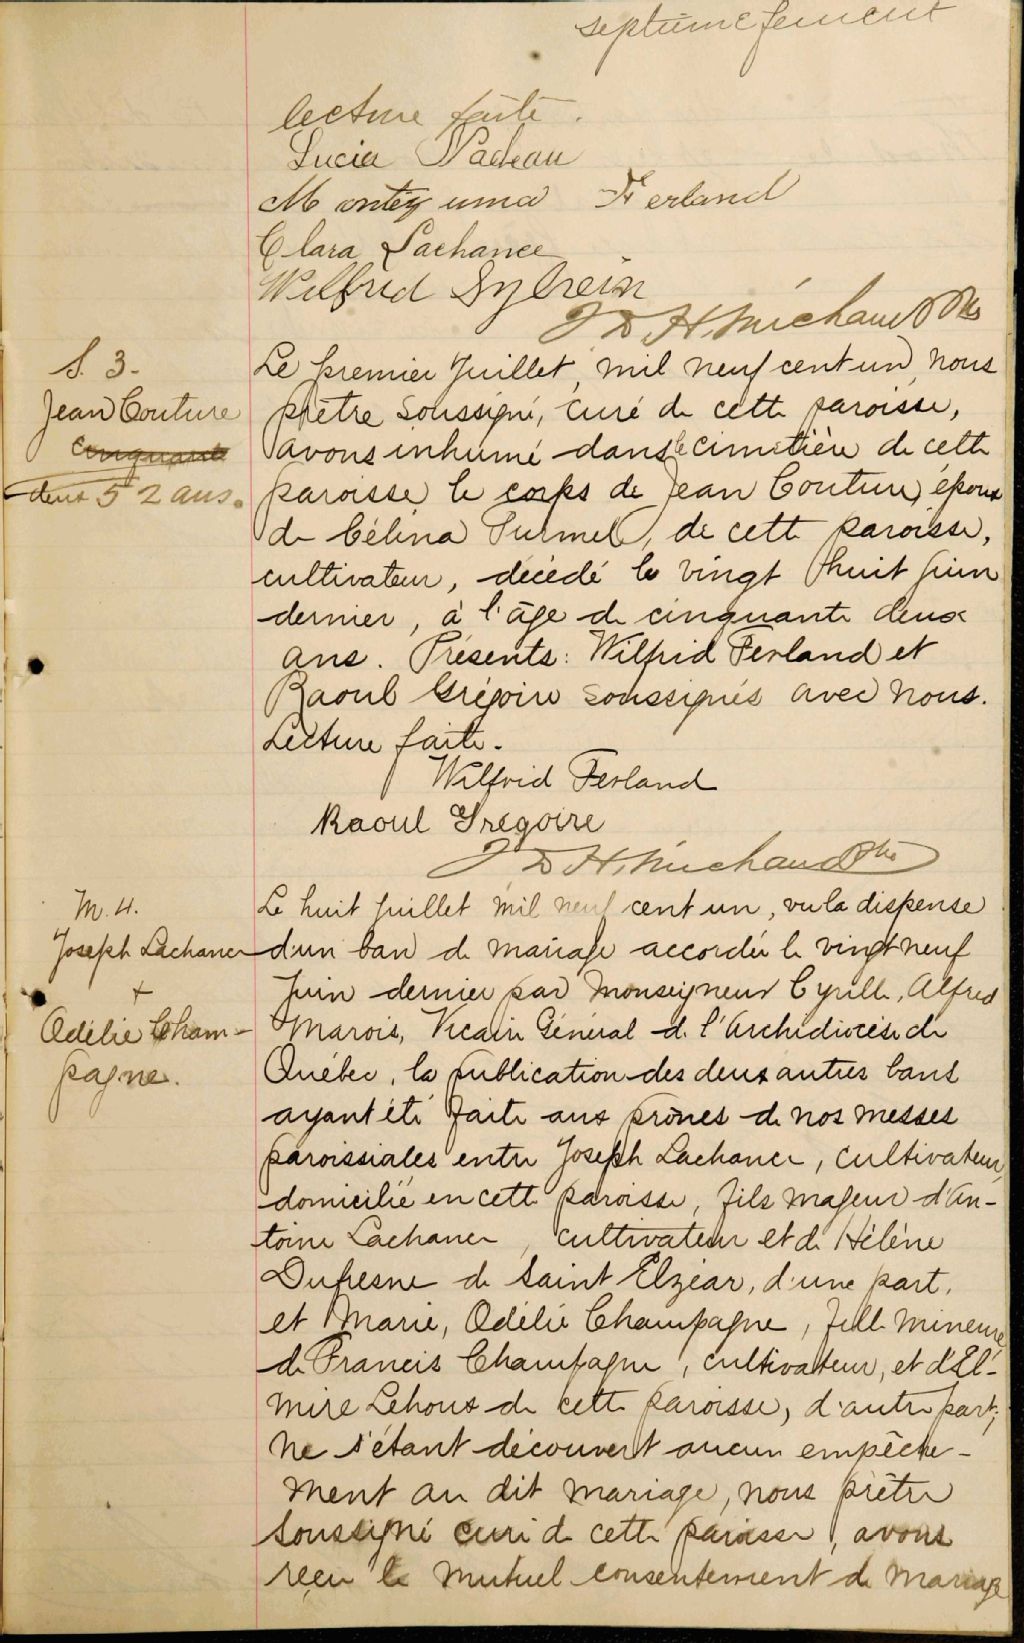 septième feuillet
lecture faite.
Lucia Nadeau
Montezuma Ferland
Clara Lachance
Wilfrid Sylvain
J D H Michaud Ptre
S. 3.
Jean Couture
cinquante
deux 52 ans.
Le premier Juillet, mil neuf cent un, nous
prêtre soussigné, curé de cette paroisse,
avons inhumé dans le cimetière de cette
paroisse le corps de Jean Couture, époux
de Célina Turmel, de cette paroisse,
cultivateur, décédé le vingt huit juin
dernier, à l'âge de cinquante deux
ans. Présents: Wilfrid Ferland et
Raoul Grégoire soussignés avec nous.
Lecture faite.
Wilfrid Ferland
Raoul Gregoire
J D H Michaud Ptre
M. 4.
Joseph Lachance
+
Odélie Cham-
pagne.
Le huit Juillet mil neuf cent un, vu la dispense
d'un ban de mariage accordée le vingt neuf
Juin dernier par Monseigneur Cyrille, Alfred
Marois, Vicaire Général de l'Archidiocèse de
Québec, la publication des deux autres bans
ayant été faite aux prônes de nos messes
paroissiales entre Joseph Lachance, cultivateur,
domicilié en cette paroisse, fils majeur d'An-
toine Lachance, cultivateur et de Hélène
Dufresne de Saint Elzéar, d'une part,
et Marie, Odélie Champagne, fille mineure,
de Francis Champagne, cultivateur, et d'El-
mire Lehoux de cette paroisse, d'autre part;
ne s'étant découvert aucun empêche-
ment au dit mariage, nous prêtre
soussigné curé de cette paroisse, avons
reçu le mutuel consentement de mariage